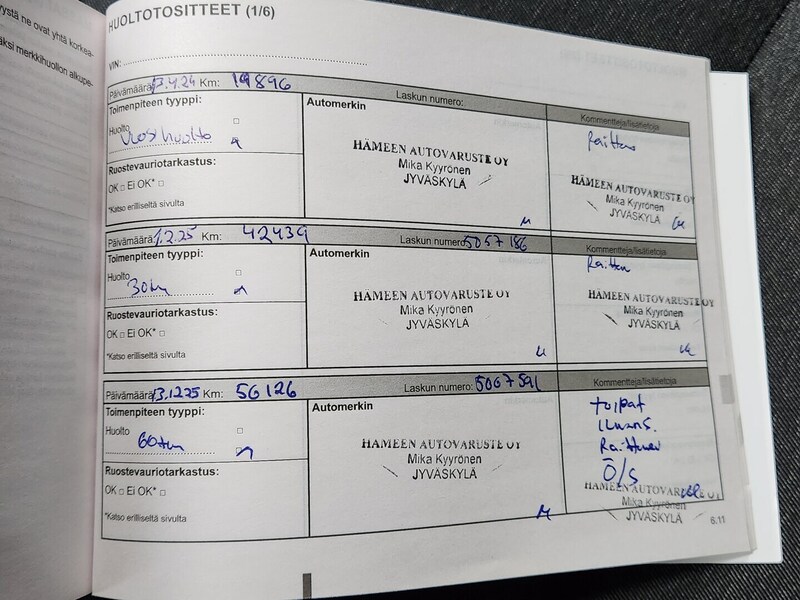 ystä ne ovat yhtä korkea-
äksi merkkihuollon alkupe-
HUOLTOTOSITTEET (1/6)
VIN:
Päivämäärä: 13.4.24 Km: 19896 Laskun numero:
Toimenpiteen tyyppi: Automerkin Kommentteja/lisätietoja
Huolto
Vuosihuolto
Raitisu
Ruostevauriotarkastus:
OK □ Ei OK* □
*Katso erilliseltä sivulta
HÄMEEN AUTOVARUSTE OY
Mika Kyyrönen
JYVÄSKYLÄ
HÄMEEN AUTOVARUSTE OY
Mika Kyyrönen
JYVÄSKYLÄ
Päivämäärä: 1.2.25 Km: 42439 Laskun numero: 5057186
Toimenpiteen tyyppi: Automerkin Kommentteja/lisätietoja
Huolto
30tkm
Ruostevauriotarkastus:
OK □ Ei OK* □
*Katso erilliseltä sivulta
HÄMEEN AUTOVARUSTE OY
Mika Kyyrönen
JYVÄSKYLÄ
HÄMEEN AUTOVARUSTE OY
Mika Kyyrönen
JYVÄSKYLÄ
Päivämäärä: 13.1225 Km: 56126 Laskun numero: 5067591
Toimenpiteen tyyppi: Automerkin Kommentteja/lisätietoja
Huolto
60tkm
Ruostevauriotarkastus:
OK □ Ei OK* □
*Katso erilliseltä sivulta
HÄMEEN AUTOVARUSTE OY
Mika Kyyrönen
JYVÄSKYLÄ
tulpat
ilmans.
Ö/S
HÄMEEN AUTOVARUSTE OY
Mika Kyyrönen
JYVÄSKYLÄ
6.11